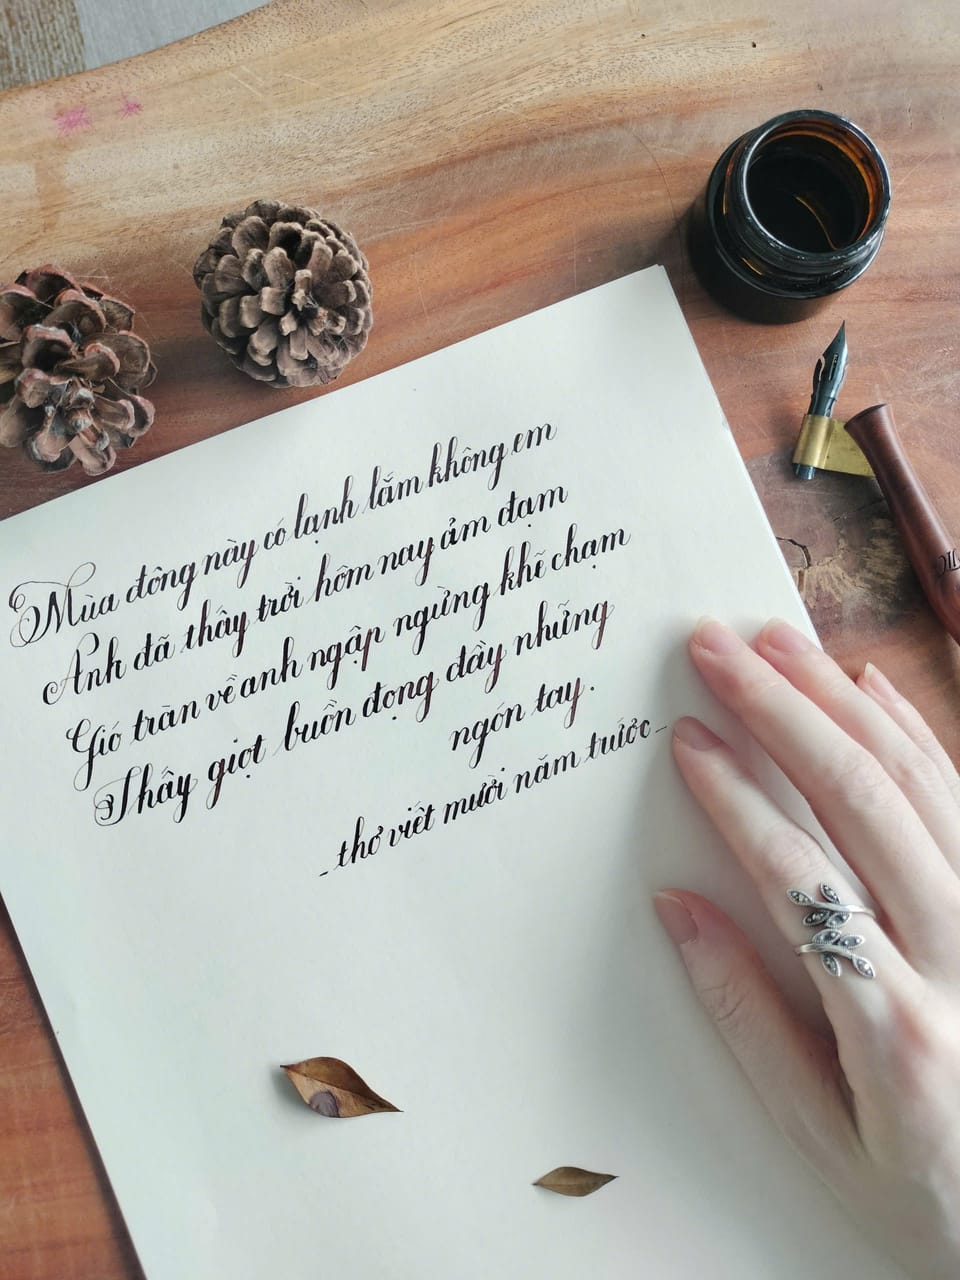 Mùa đông này có lạnh lắm không em
Anh đã thấy trời hôm nay ảm đạm
Gió tràn về anh ngập ngừng khẽ chạm
Thấy giọt buồn đọng đầy những
ngón tay.
_thơ viết mười năm trước_